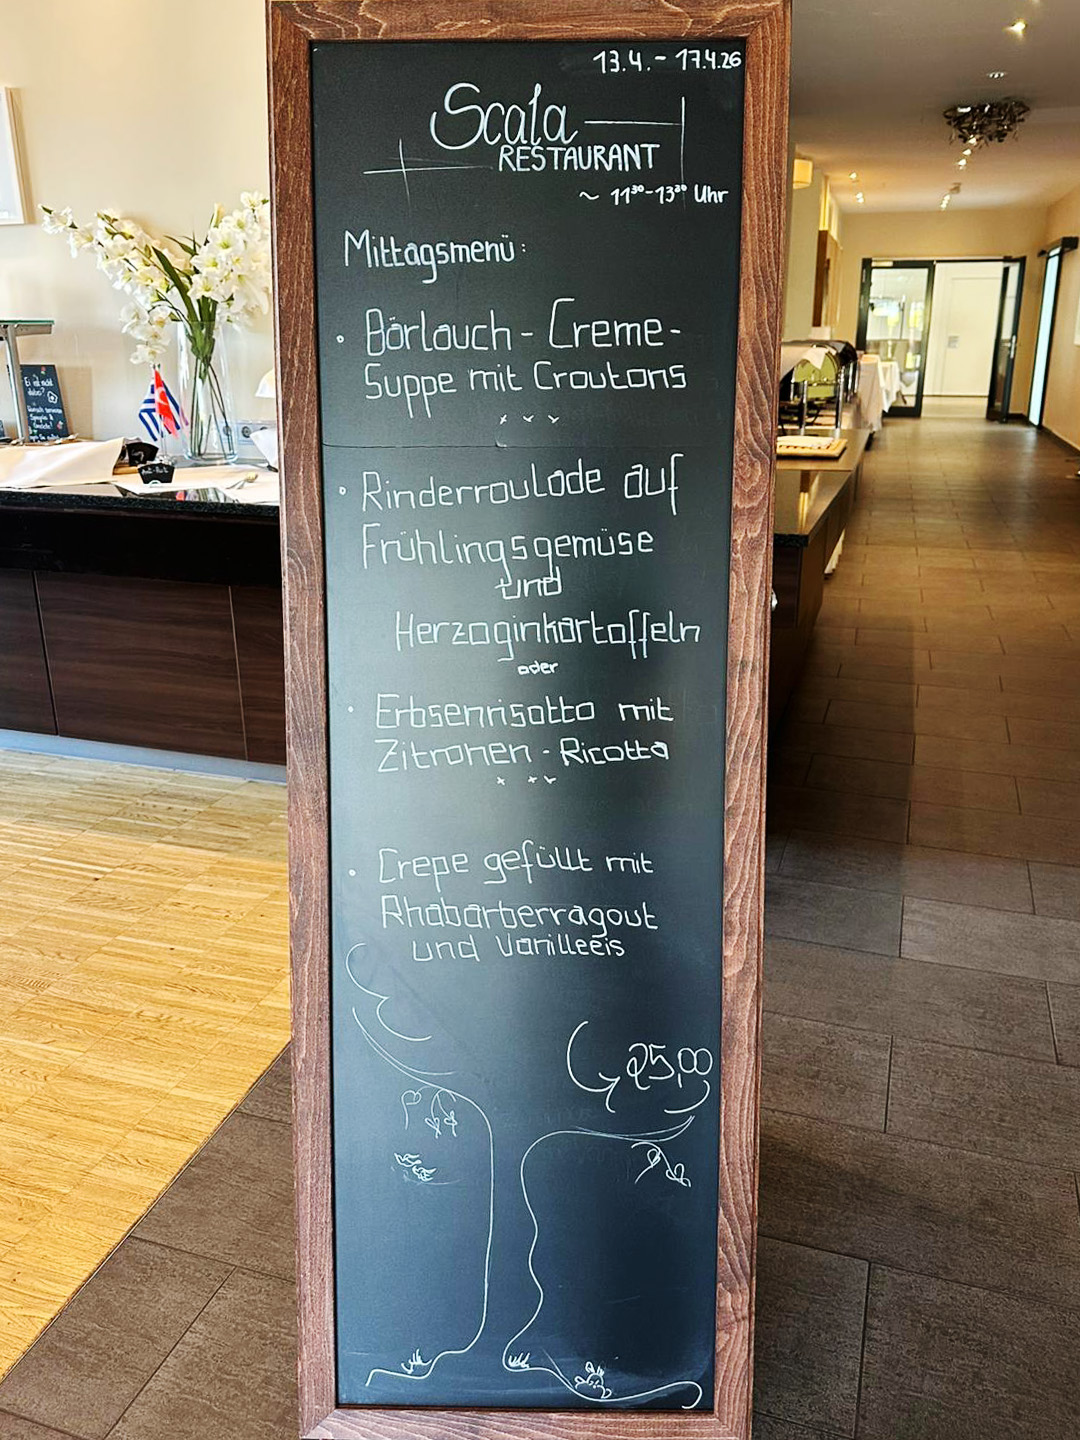 13.4. - 17.4.26
Scala
RESTAURANT
~ 11³⁰-13³⁰ Uhr
Mittagsmenü:
• Bärlauch - Creme-
Suppe mit Croutons
• Rinderroulade auf
Frühlingsgemüse
und
Herzoginkartoffeln
oder
• Erbsenrisotto mit
Zitronen - Ricotta
• Crepe gefüllt mit
Rhabarberragout
und Vanilleeis
25,00
Ei ist nicht
dabei?